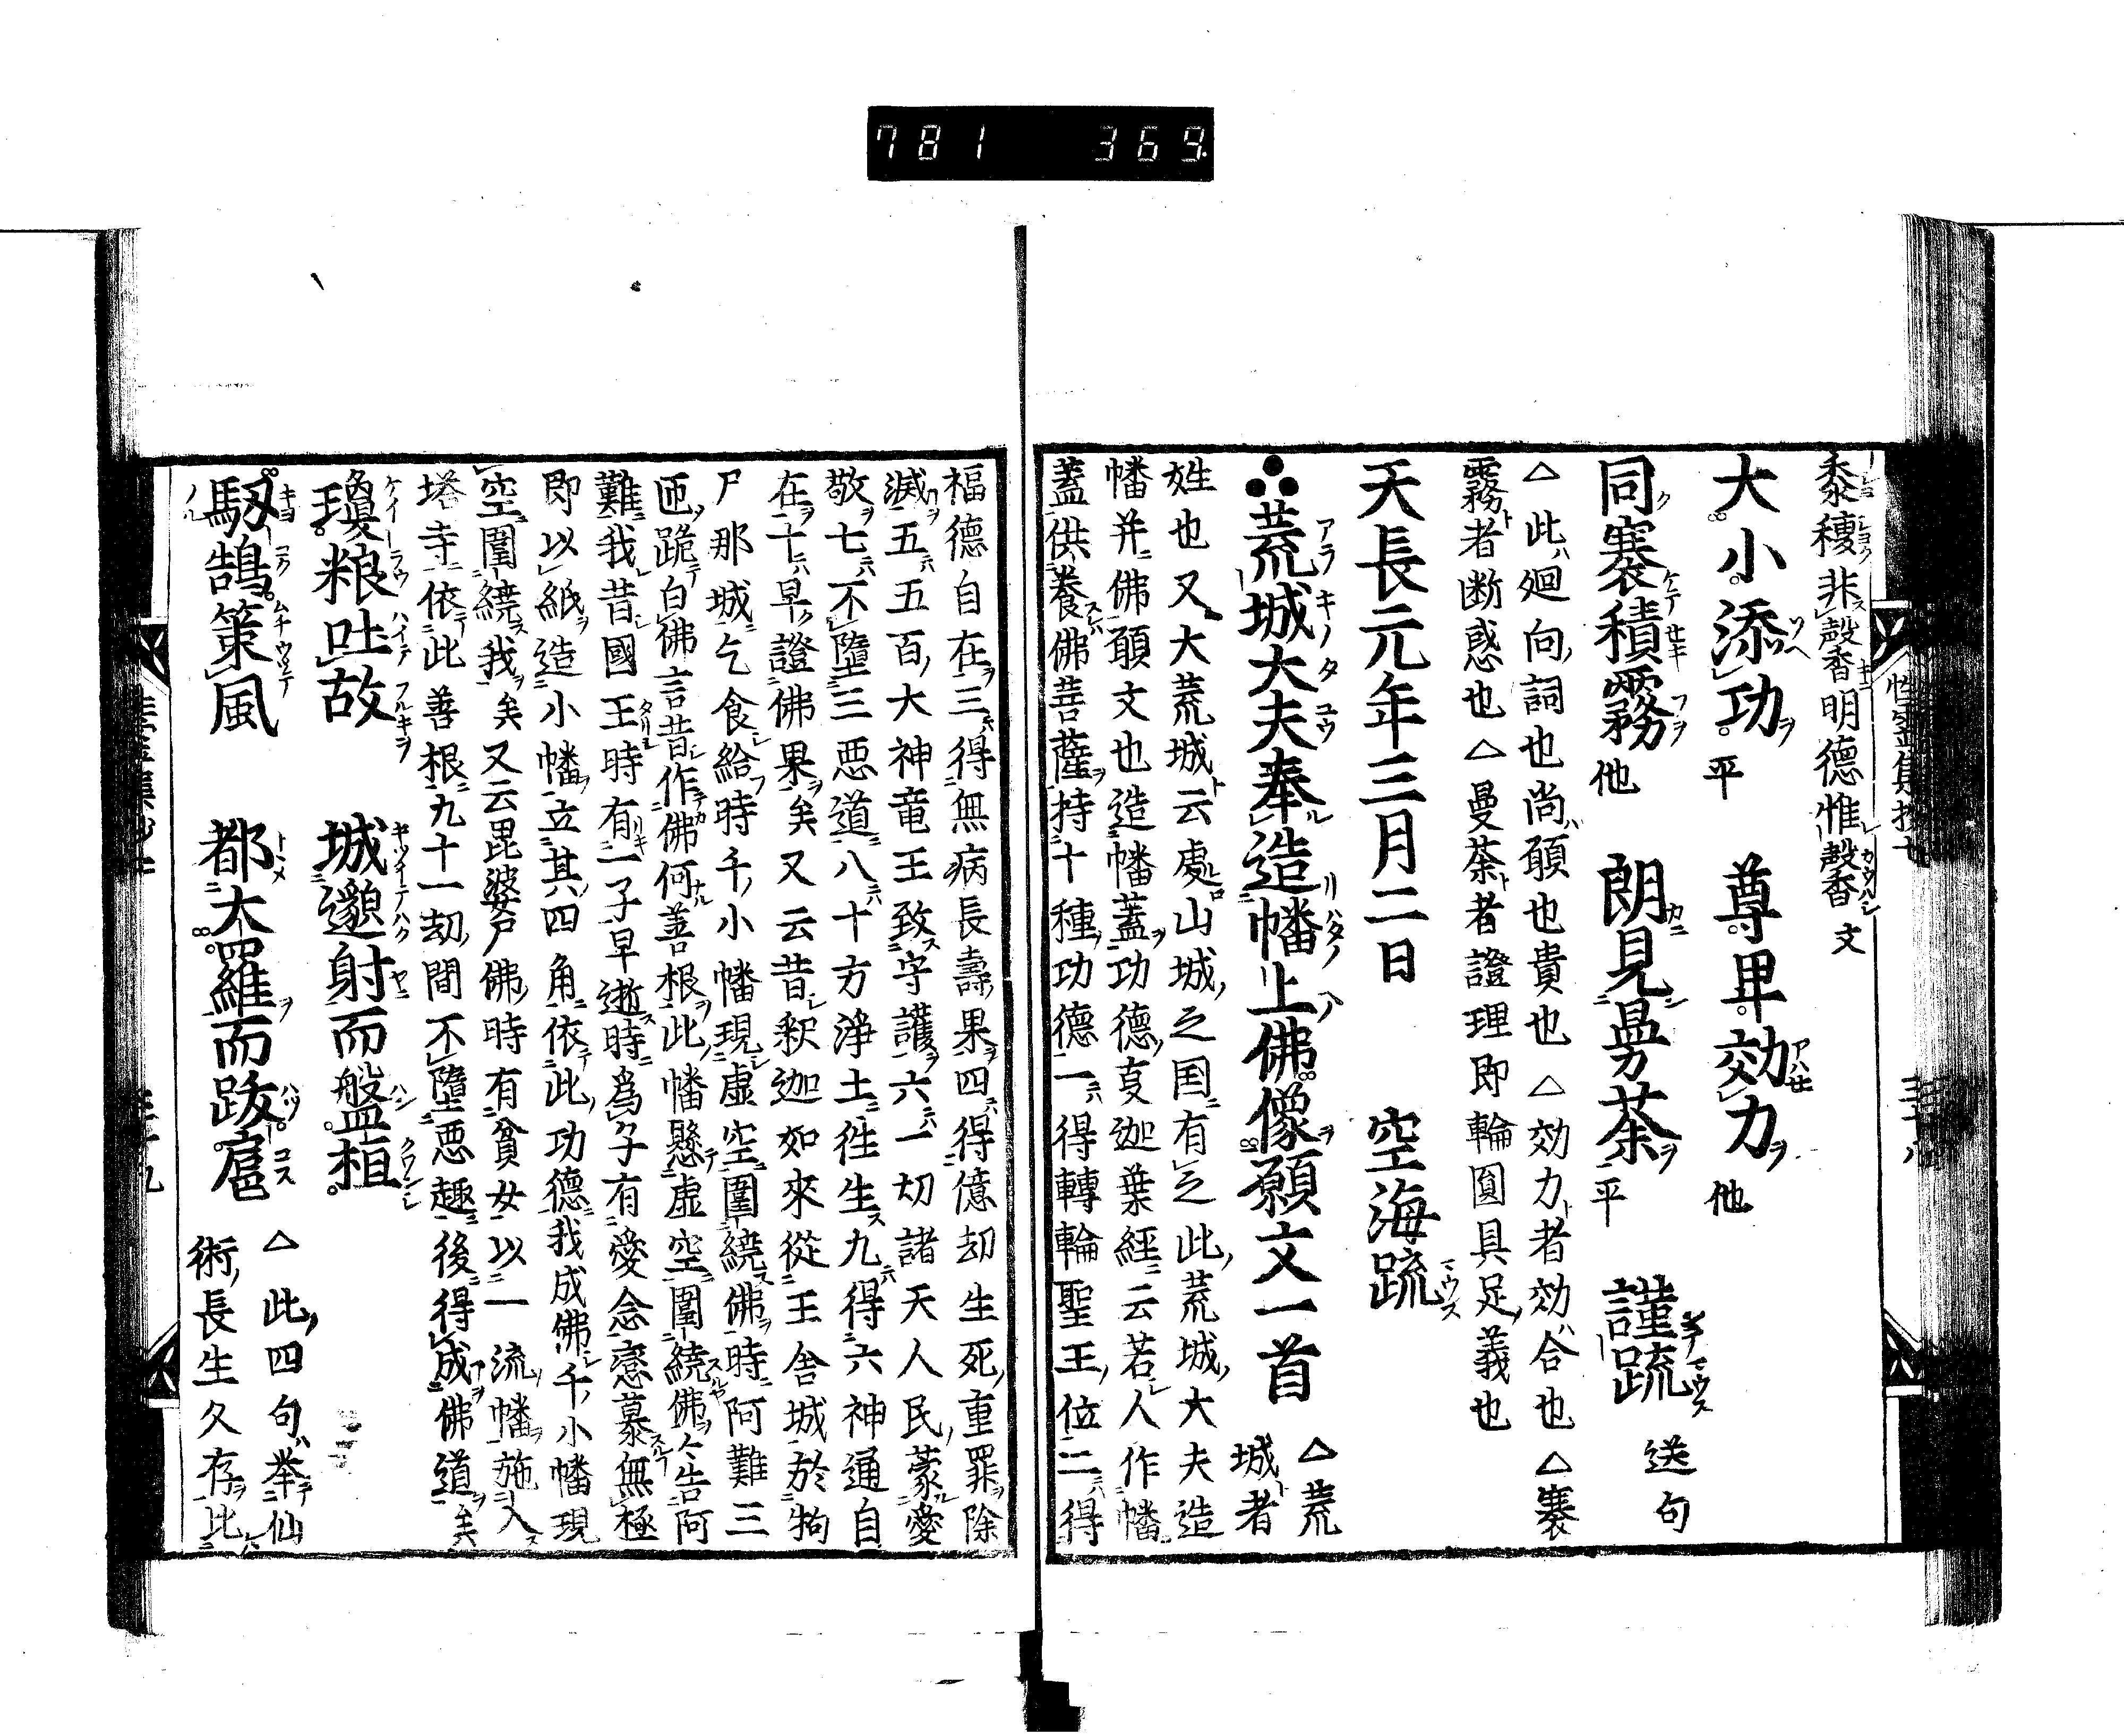 781 369
黍稷非馨香明德惟馨香文
大小添功平 尊卑効力他
同褰積霧他 朗見曼荼平 謹疏送句
△此廻向詞也尚願也貴也△効力者効合也△褰
霧者断惑也△曼荼者證理即輪圓具足義也
天長元年三月二日 空海疏
荒城大夫奉造幡上佛像願文一首 △荒城者
姓也又大荒城云處山城之国有之此荒城大夫造
幡并佛願文也造幡蓋功德亥迦葉經云若人作幡
蓋供養佛菩薩持十種功德一得轉輪聖王位二得
福德自在三得無病長壽果四得億劫生死重罪除
滅五五百大神竜王致守護六一切諸天人民蒙愛
敬七不墮三悪道八十方淨土徃生九得六神通自
在十早證佛果矣又云昔釈迦如來從王舍城於拘
尸那城乞食給時千小幡現虚空圍繞佛時阿難三
匝跪白佛言昔作佛何善根此幡懸虚空圍繞佛々告阿
難我昔國王時有一子早逝時爲子有愛念戀慕無極
即以紙造小幡立其四角依此功德我成佛千小幡現
空圍繞我矣又云毘婆尸佛時有貧女以一流幡施入
塔寺依此善根九十一劫間不墮悪趣後得成佛道矣
瓊粮吐故 城邈射而盤桓
馭鵠策風 都大羅而跋扈 △此四句举仙
術長生久存比